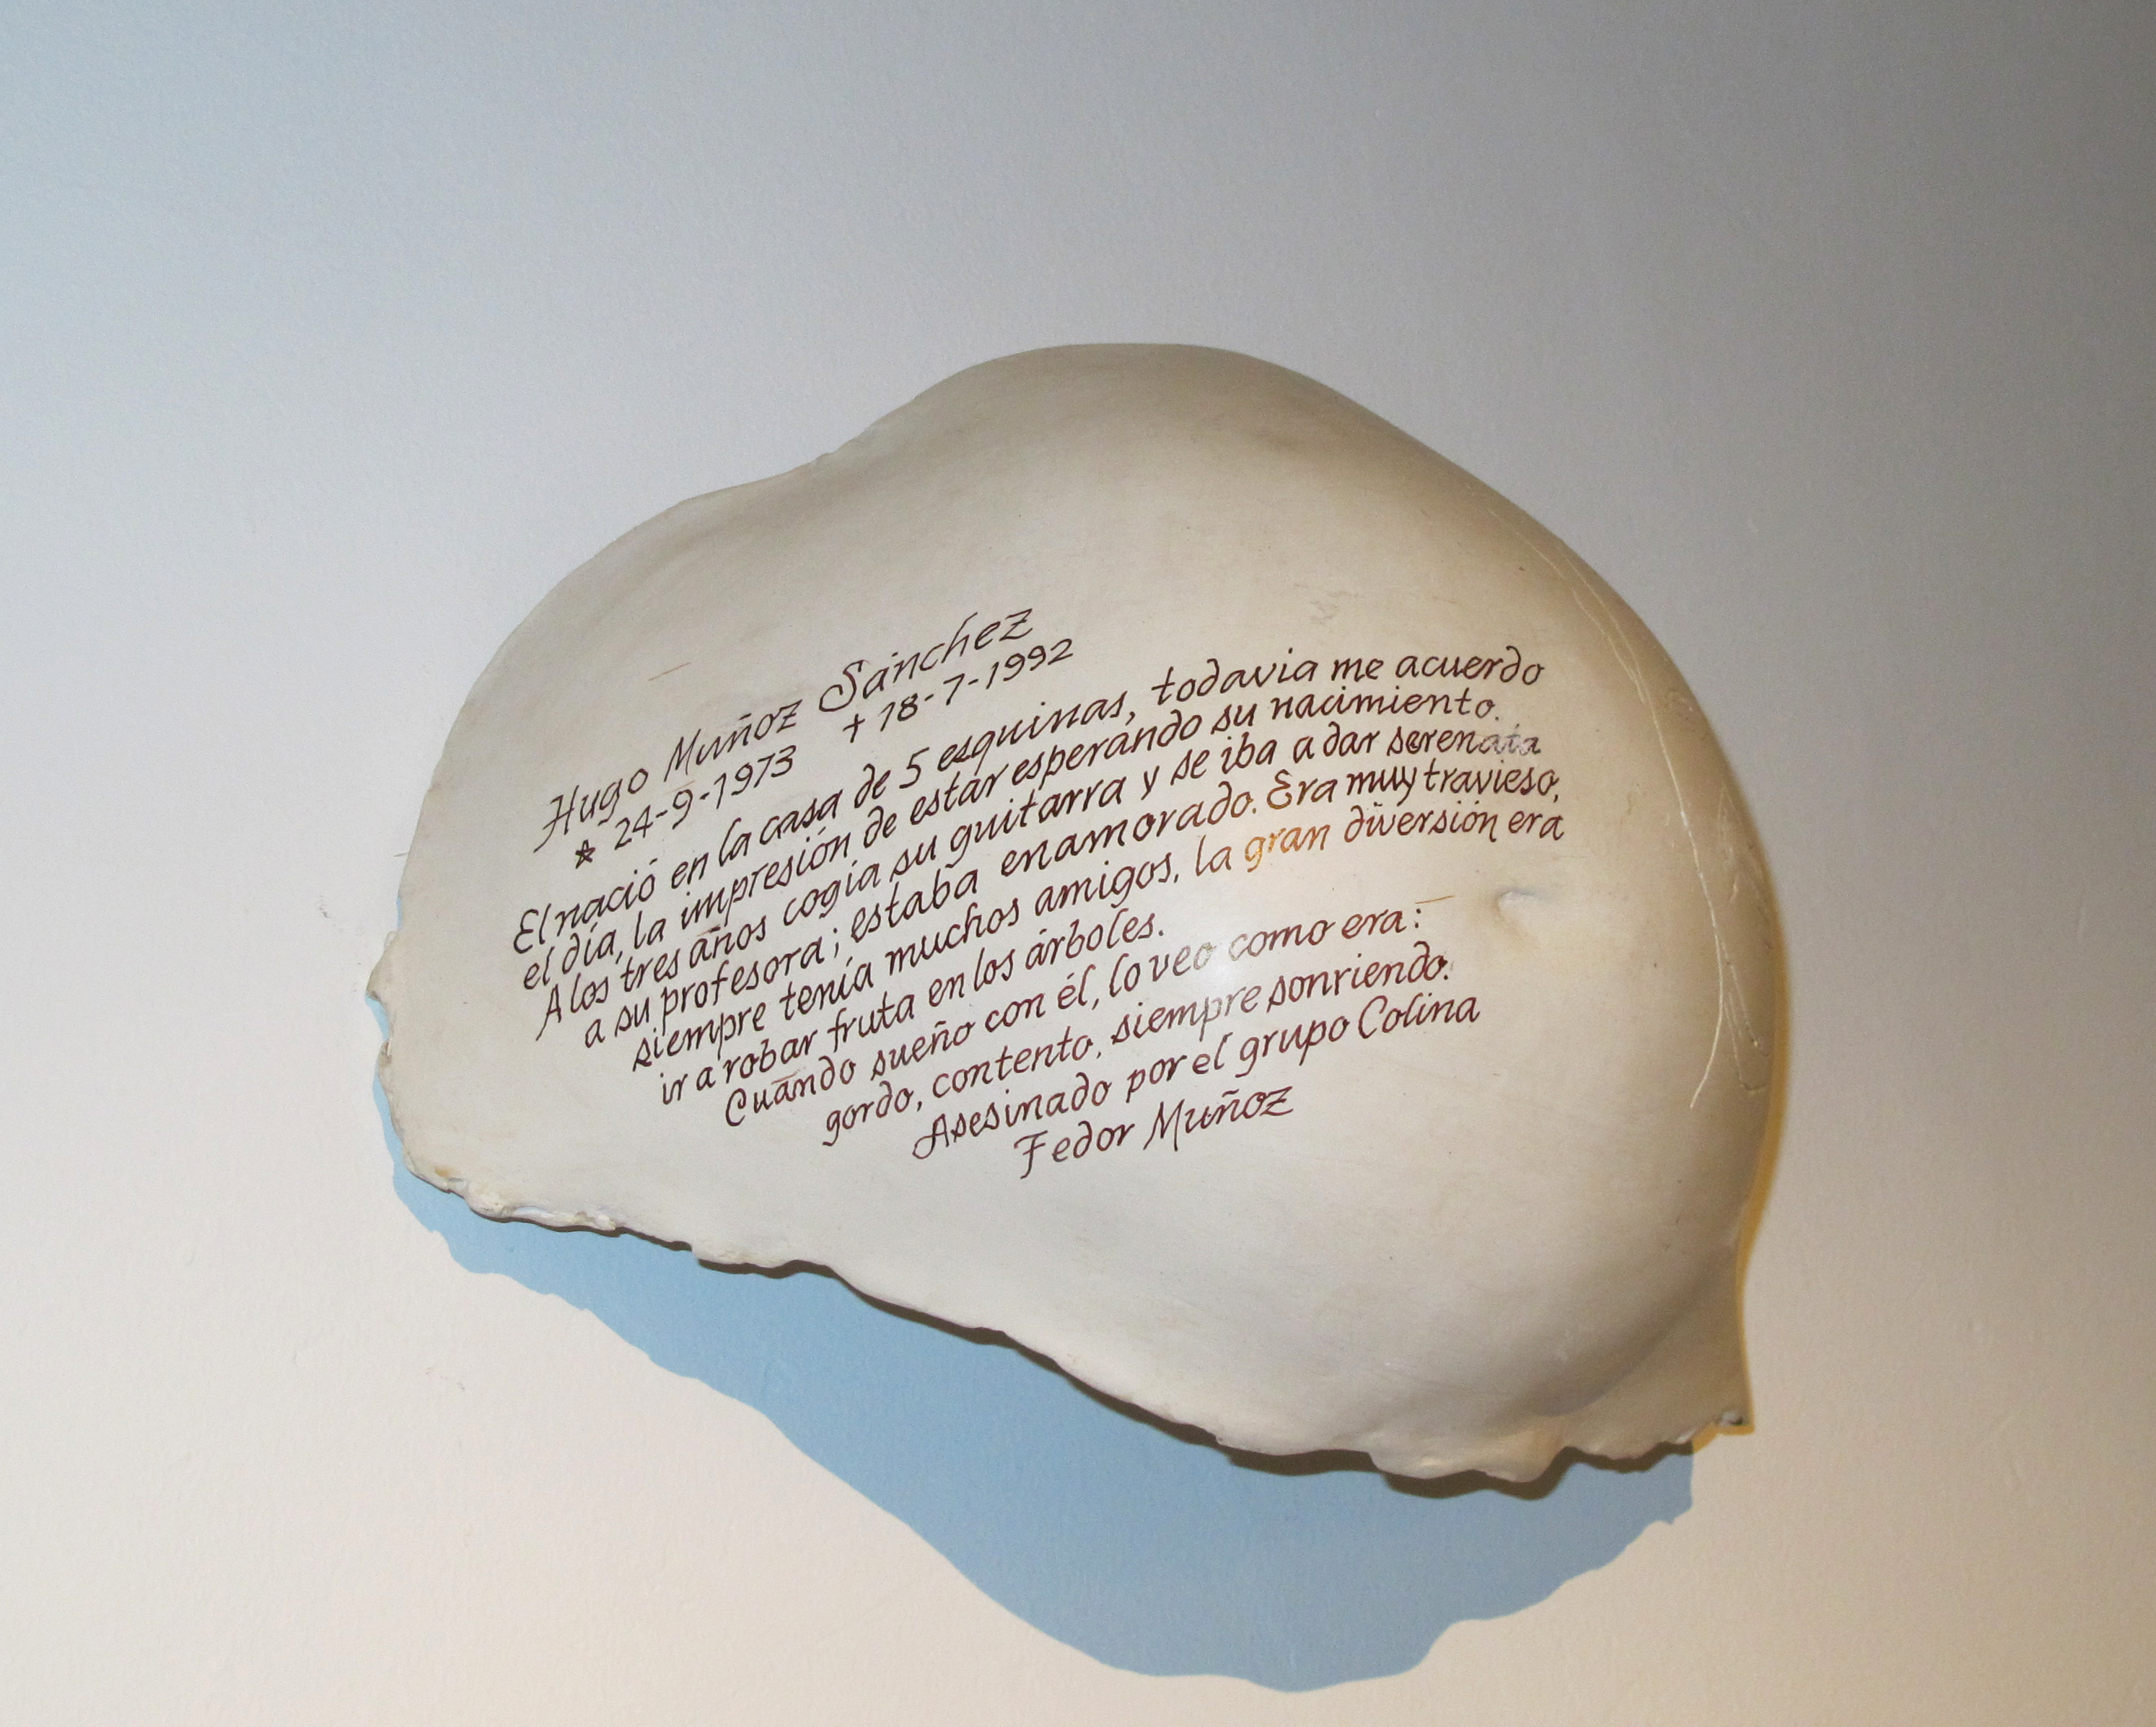 Hugo Muñoz Sánchez
* 24-9-1973 † 18-7-1992
El nació en la casa de 5 esquinas, todavia me acuerdo
el día, la impresión de estar esperando su nacimiento.
A los tres años cogía su guitarra y se iba a dar serenata
a su profesora; estaba enamorado. Era muy travieso,
siempre tenía muchos amigos, la gran diversión era
ir a robar fruta en los árboles.
Cuando sueño con él, lo veo como era:
gordo, contento, siempre sonriendo.
Asesinado por el grupo Colina
Fedor Muñoz